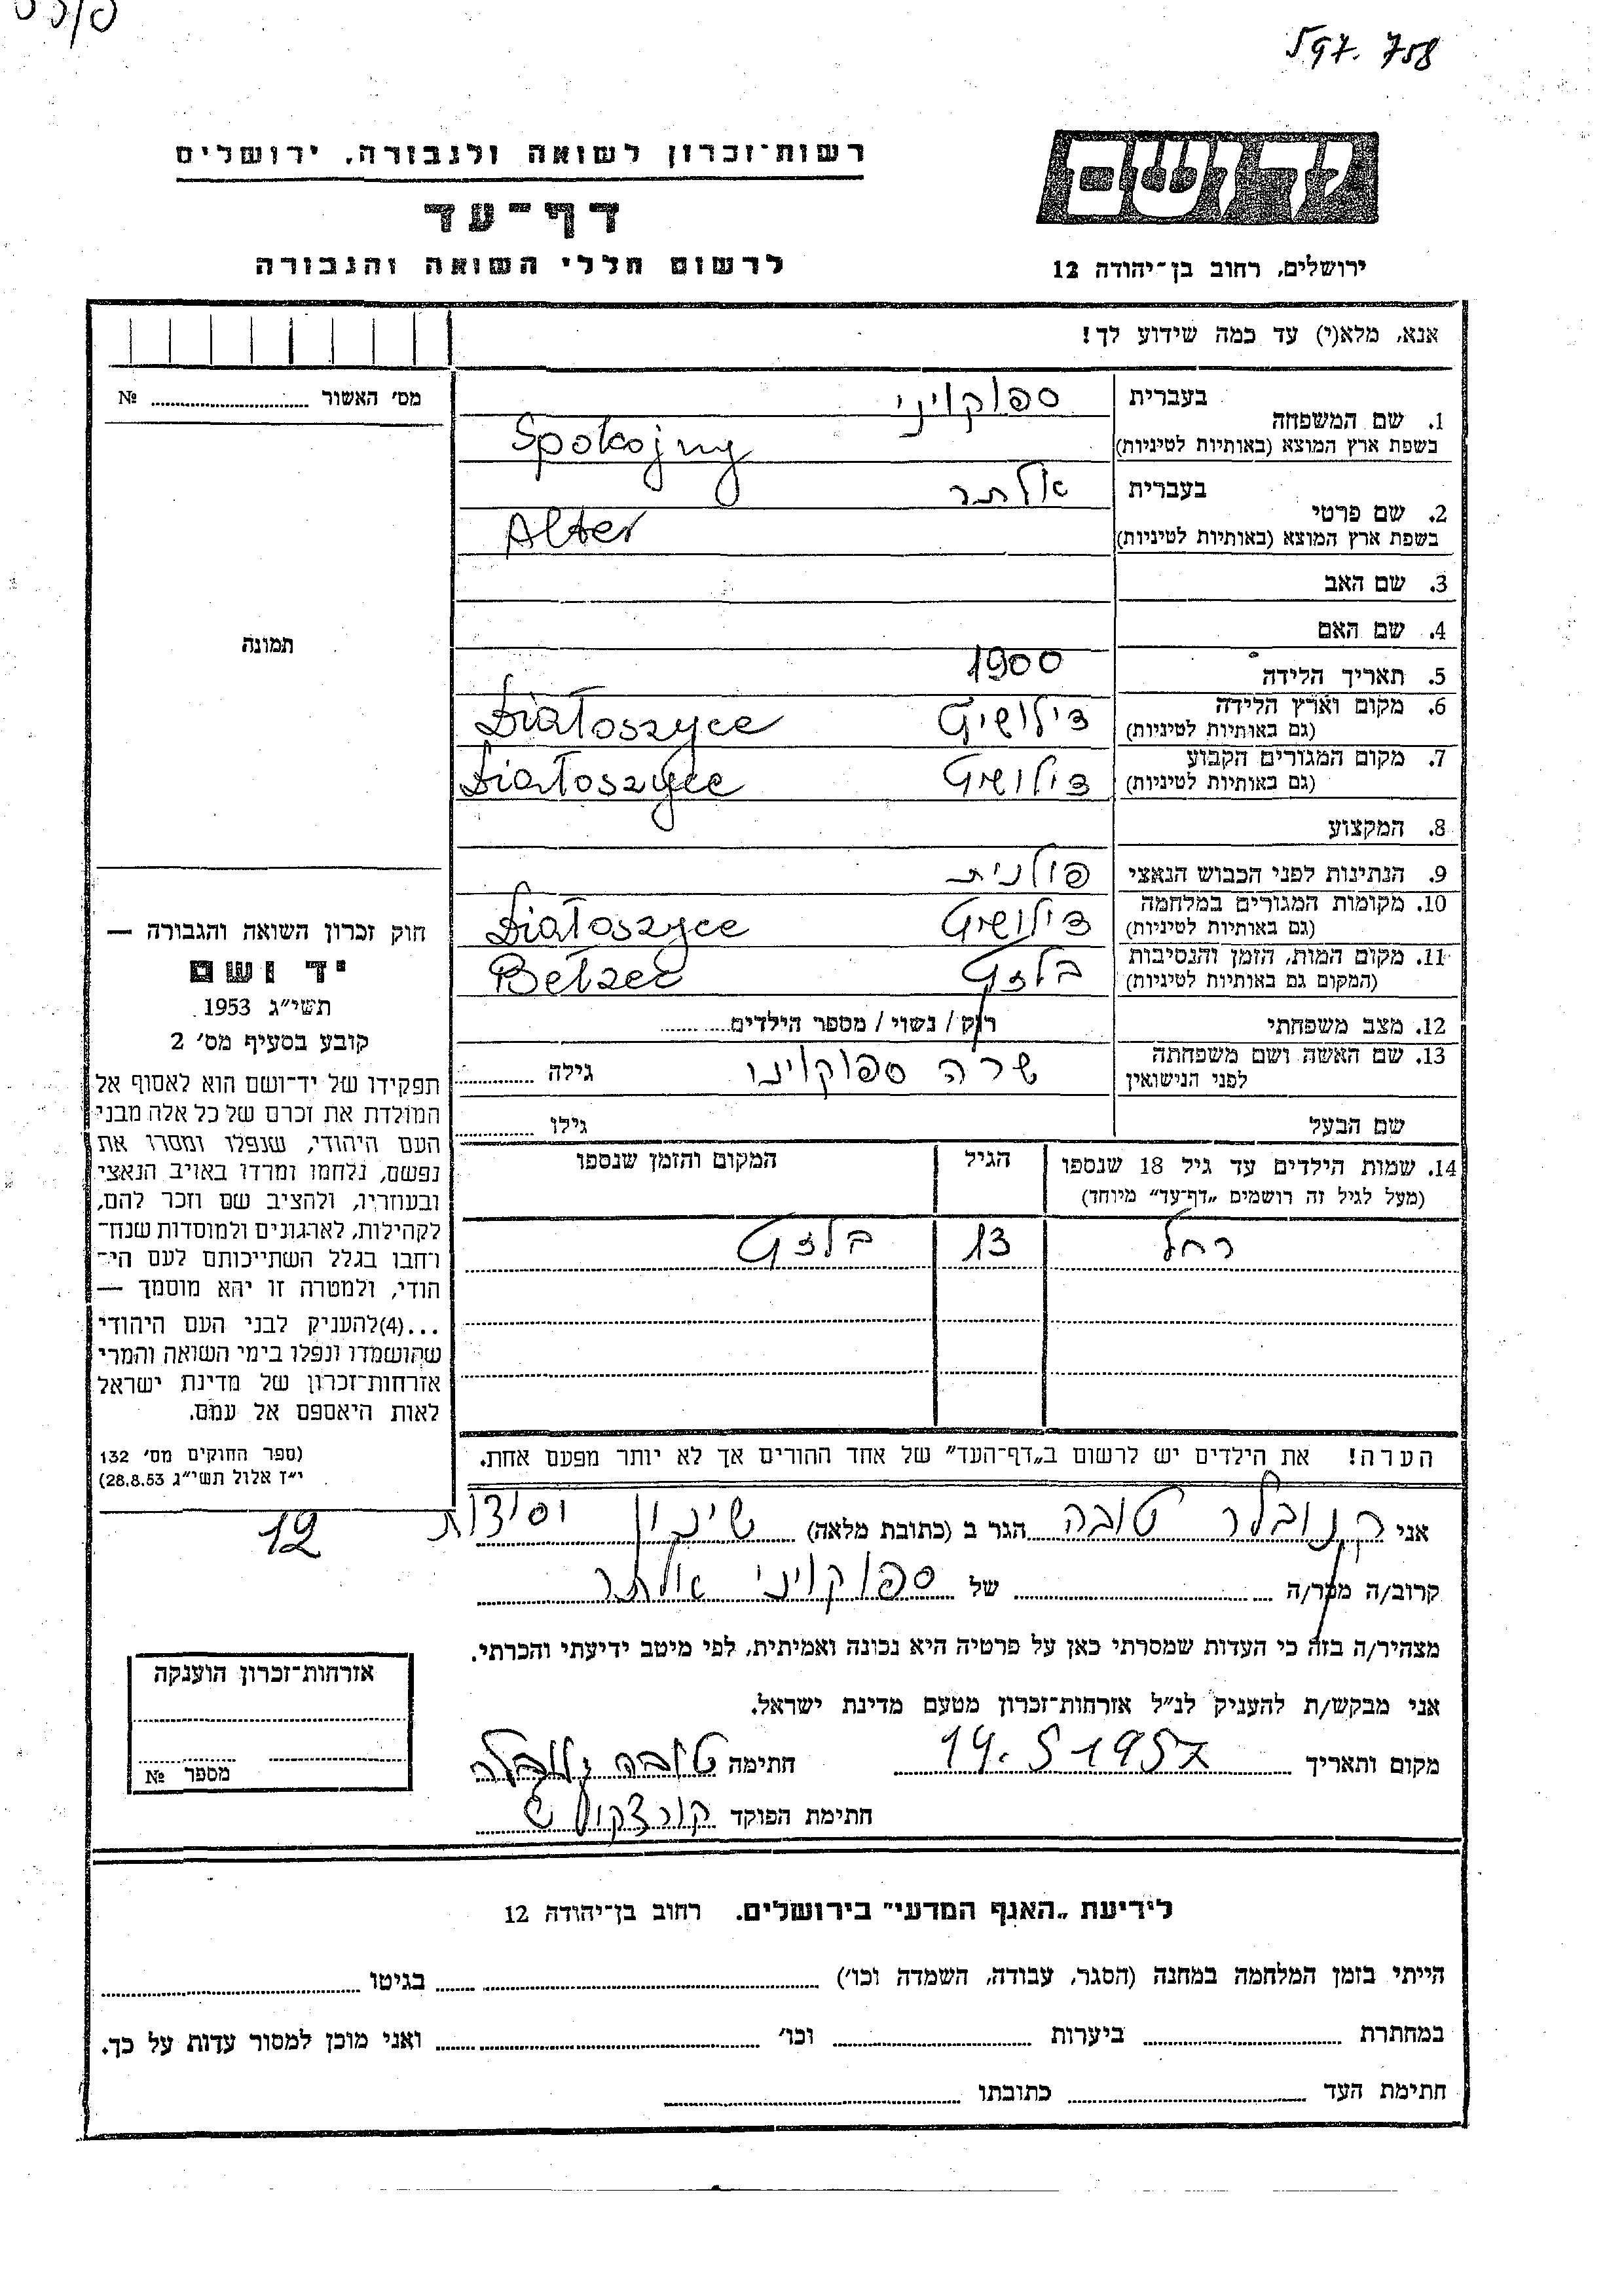 597.758
רשות־זכרון לשואה ולגבורה, ירושלים
ידושם
דף־עד
לרשום חללי השואה והגבורה
ירושלים, רחוב בן־יהודה 12
אנא, מלא(י) עד כמה שידוע לך!
מס׳ האשור № 
בעברית ספוקויני
1. שם המשפחה
בשפת ארץ המוצא (באותיות לטיניות) Spokojny
בעברית אלתר
2. שם פרטי
בשפת ארץ המוצא (באותיות לטיניות) Alter
3. שם האב
4. שם האם
תמונה
5. תאריך הלידה 1900
6. מקום וארץ הלידה
(גם באותיות לטיניות) Działoszyce
7. מקום המגורים הקבוע
(גם באותיות לטיניות) Działoszyce
8. המקצוע
9. הנתינות לפני הכבוש הנאצי פולנית
10. מקומות המגורים במלחמה
(גם באותיות לטיניות) Działoszyce
11. מקום המות, הזמן והנסיבות
(המקום גם באותיות לטיניות) בלזץ Bełzec
12. מצב משפחתי רוק / נשוי / מספר הילדים
13. שם האשה ושם משפחתה
לפני הנישואין שרה ספוקוינו גילה
שם הבעל גילו
14. שמות הילדים עד גיל 18 שנספו הגיל המקום והזמן שנספו
(מעל לגיל זה רושמים „דף־עד״ מיוחד)
רחל 13 בלזץ
הערה! את הילדים יש לרשום ב„דף־העד״ של אחד ההורים אך לא יותר מפעם אחת.
חוק זכרון השואה והגבורה —
יד ושם
תשי״ג 1953
קובע בסעיף מס׳ 2
תפקידו של יד־ושם הוא לאסוף אל
המולדת את זכרם של כל אלה מבני
העם היהודי, שנפלו ומסרו את
נפשם, נלחמו ומרדו באויב הנאצי
ובעוזריו, ולהציב שם וזכר להם,
לקהילות, לארגונים ולמוסדות שנח־
רחבו בגלל השתייכותם לעם הי־
הודי, ולמטרה זו יהא מוסמך —
...(4)להעניק לבני העם היהודי
שהושמדו ונפלו בימי השואה והמרי
אזרחות־זכרון של מדינת ישראל
לאות היאספם אל עמם.
(ספר החוקים מס׳ 132
י״ז אלול תשי״ג 28.8.53)
אני קנובלר טובה הגר ב (כתובת מלאה) שיכון 12
קרוב/ה מכר/ה של ספוקויני אלתר
מצהיר/ה בזה כי העדות שמסרתי כאן על פרטיה היא נכונה ואמיתית, לפי מיטב ידיעתי והכרתי.
אני מבקש/ת להעניק לנ״ל אזרחות־זכרון מטעם מדינת ישראל.
מקום ותאריך 14.5 1957 חתימה טובה
חתימת הפוקד
אזרחות־זכרון הוענקה
מספר №
לידיעת „האגף המדעי״ בירושלים. רחוב בן־יהודה 12
הייתי בזמן המלחמה במחנה (הסגר, עבודה, השמדה וכו׳) בגיטו
במחתרת ביערות וכו׳ ואני מוכן למסור עדות על כך.
חתימת העד כתובתו